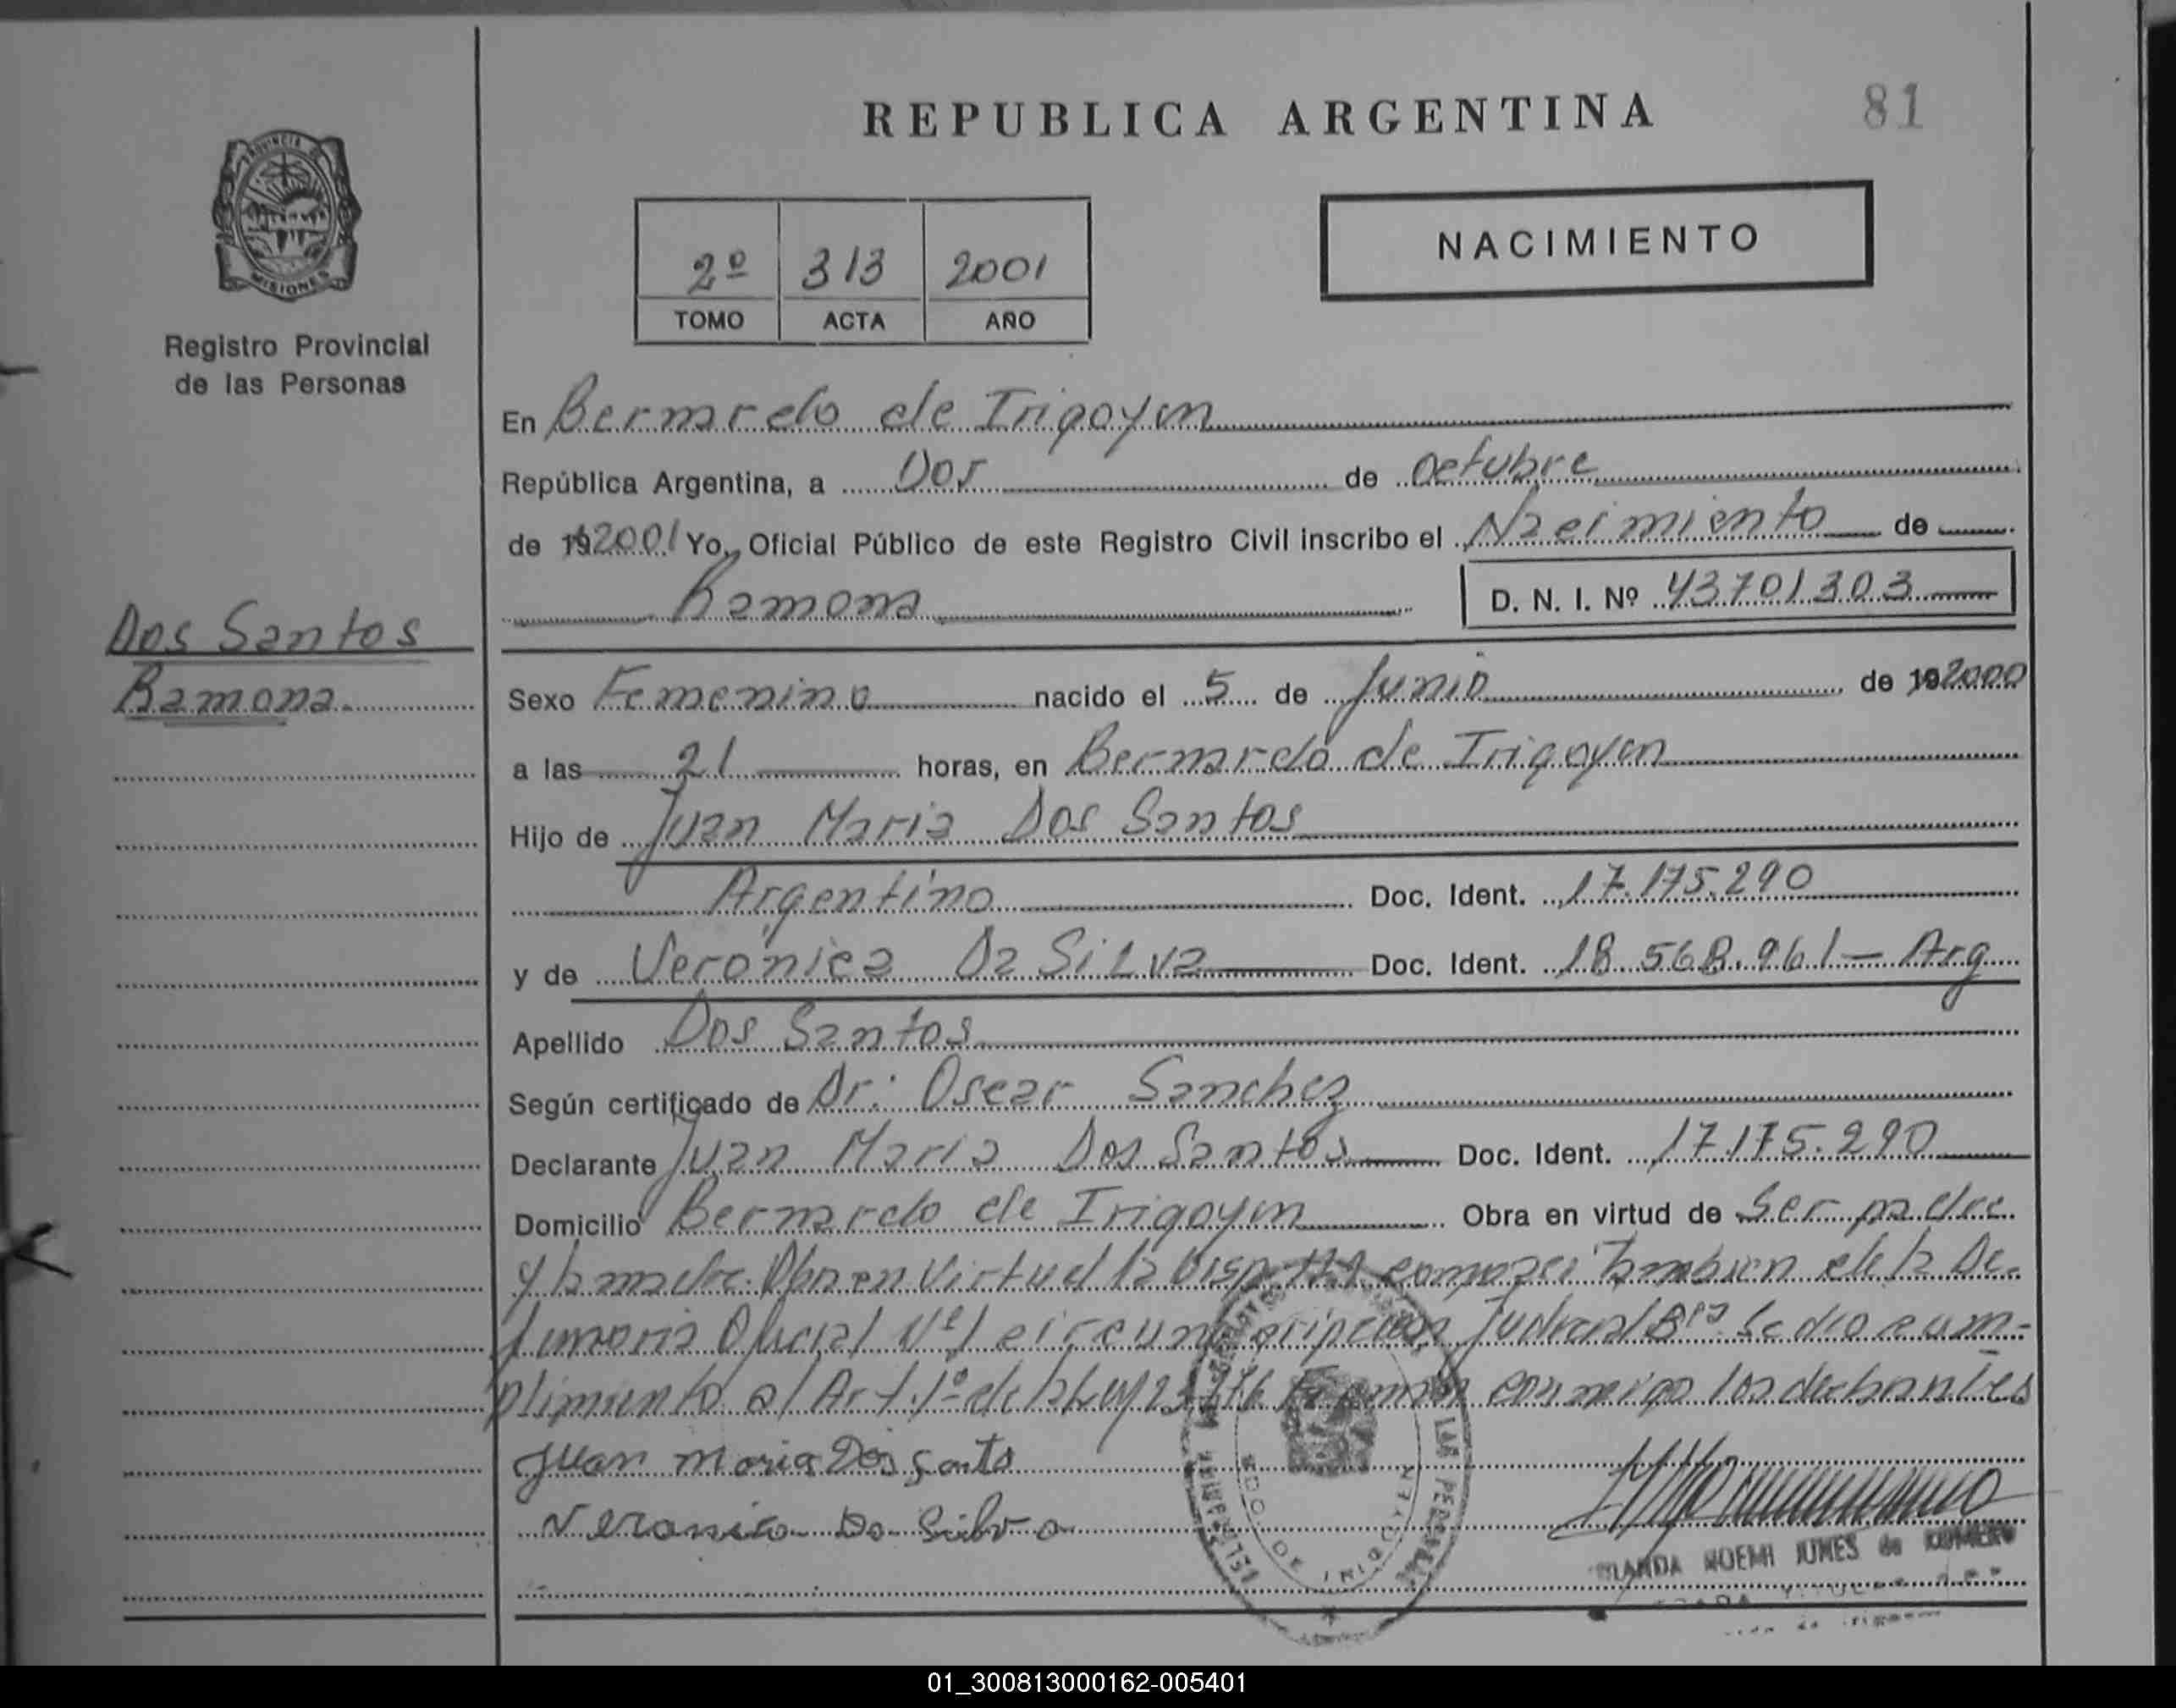 REPUBLICA ARGENTINA
81
PROVINCIA DE
MISIONES
Registro Provincial
de las Personas
2º 313 2001
TOMO ACTA AÑO
NACIMIENTO
En Bernardo de Irigoyen
República Argentina, a Dos de octubre
de 192001 Yo, Oficial Público de este Registro Civil inscribo el Nacimiento de
Ramona D. N. I. Nº 43701303
Dos Santos
Ramona.
Sexo Femenino nacido el 5 de Junio de 192000
a las 21 horas, en Bernardo de Irigoyen
Hijo de Juan Maria Dos Santos
Argentino Doc. Ident. 17.175.290
y de Verónica Da Silva Doc. Ident. 18.568.961 - Arg
Apellido Dos Santos
Según certificado de Dr: Oscar Sanchez
Declarante Juan Maria Dos Santos Doc. Ident. 17.175.290
Domicilio Bernardo de Irigoyen Obra en virtud de Ser padre
y la madre. Obra en Virtud la tambien de la De-
fensoria Oficial Nº1 circunscripcion Judicial Se dio cum-
plimiento al Art. 1º de la Ley Firman conmigo los declarantes
Juan Maria Dos Santo
Veronica Da Silva
NOEMI JUNES de ROMERO
LAS PERSONAS
BDO. DE IRIGOYEN
01_300813000162-005401